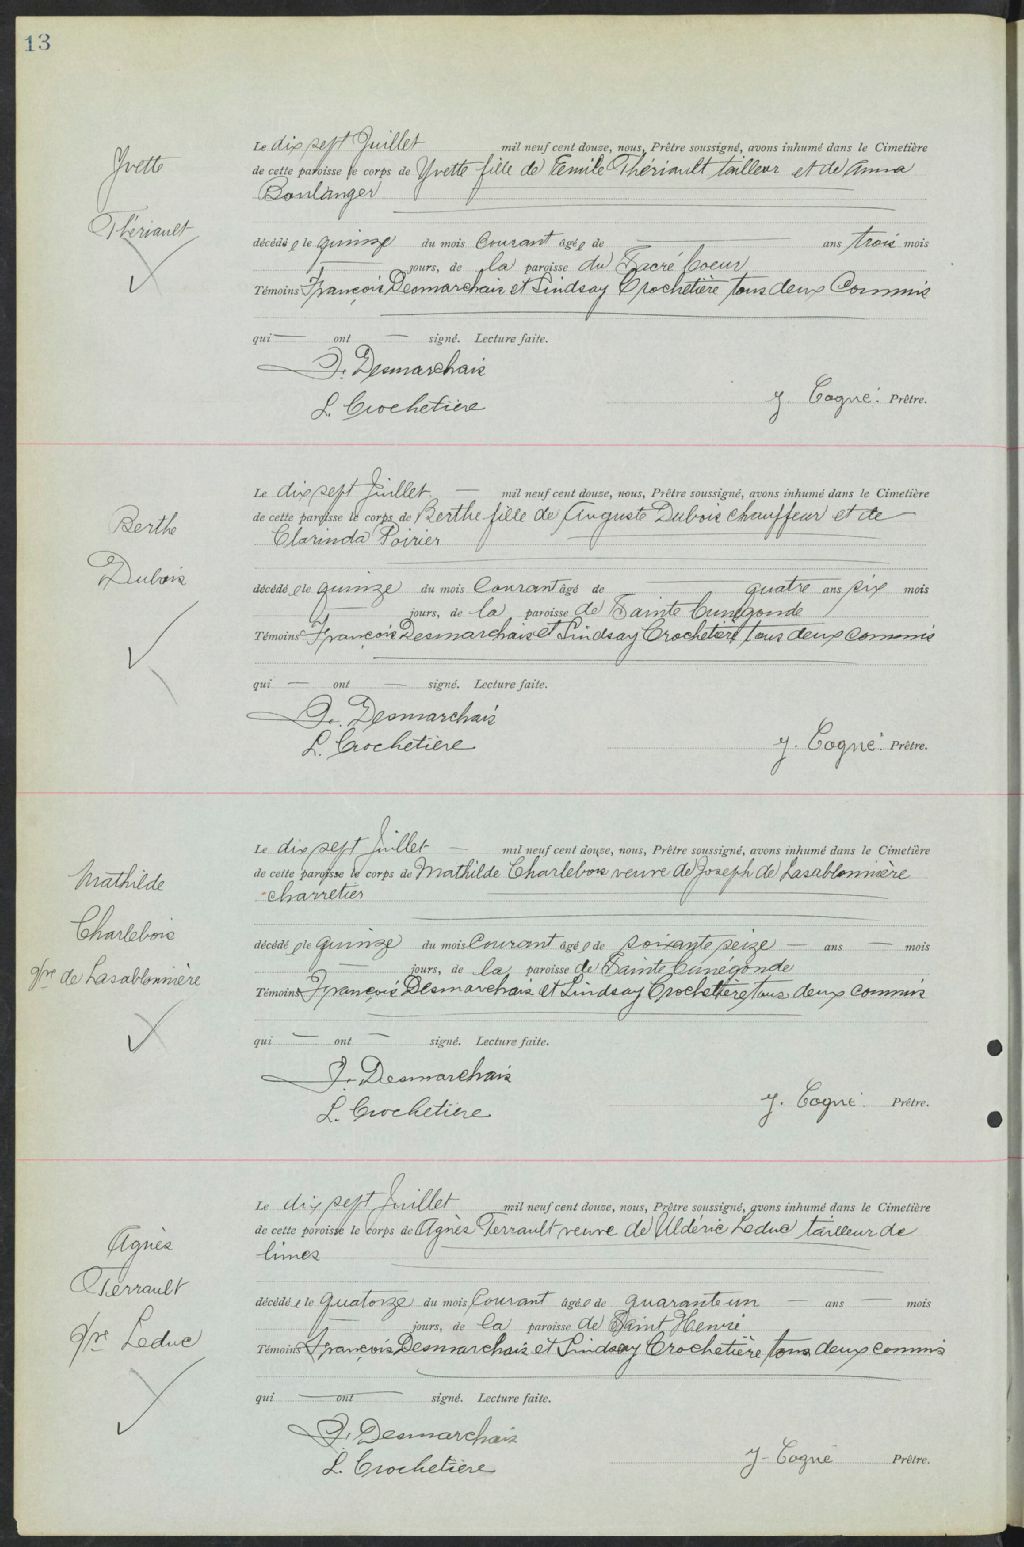 13
Yvette
Thériault
Le dix sept Juillet mil neuf cent douze, nous, Prêtre soussigné, avons inhumé dans le Cimetière
de cette paroisse le corps de Yvette fille de Emile Thériault tailleur et de Anna
Boulanger
décédée le quinze du mois Courant âgée de — ans trois mois
— jours, de la paroisse du Sacré Coeur
Témoins François Desmarchais et Lindsay Crochetière tous deux Commis
qui — ont — signé. Lecture faite.
F. Desmarchais
L. Crochetiere
J. Cogné. Prêtre.
Berthe
Dubois
Le dix sept Juillet — mil neuf cent douze, nous, Prêtre soussigné, avons inhumé dans le Cimetière
de cette paroisse le corps de Berthe fille de Auguste Dubois chauffeur et de
Clarinda Poirier
décédée le quinze du mois Courant âgé de quatre ans six mois
— jours, de la paroisse de Sainte Cunégonde
Témoins François Desmarchais et Lindsay Crochetière tous deux commis
qui — ont — signé. Lecture faite.
F. Desmarchais
L. Crochetiere
J. Cogné. Prêtre.
Mathilde
Charlebois
Vve de Lasablonnière
Le dix sept Juillet — mil neuf cent douze, nous, Prêtre soussigné, avons inhumé dans le Cimetière
de cette paroisse le corps de Mathilde Charlebois veuve de Joseph de Lasablonnière
charretier
décédée le quinze du mois Courant âgée de soixante seize — ans — mois
— jours, de la paroisse de Sainte Cunégonde
Témoins François Desmarchais et Lindsay Crochetière tous deux commis
qui — ont — signé. Lecture faite.
F. Desmarchais
L. Crochetiere
J. Cogné. Prêtre.
Agnès
Terrault
Vve Leduc
Le dix sept Juillet mil neuf cent douze, nous, Prêtre soussigné, avons inhumé dans le Cimetière
de cette paroisse le corps de Agnès Terrault veuve de Uldéric Leduc tailleur de
limes
décédée le quatorze du mois Courant âgée de quarante un — ans — mois
— jours, de la paroisse de Saint Henri
Témoins François Desmarchais et Lindsay Crochetière tous deux commis
qui — ont — signé. Lecture faite.
F. Desmarchais
L. Crochetiere
J. Cogné Prêtre.